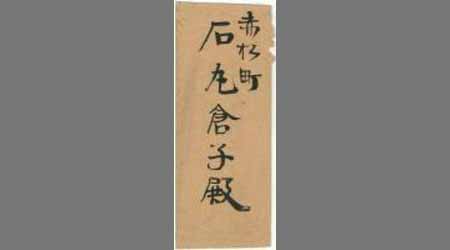 赤松町
石丸倉子殿